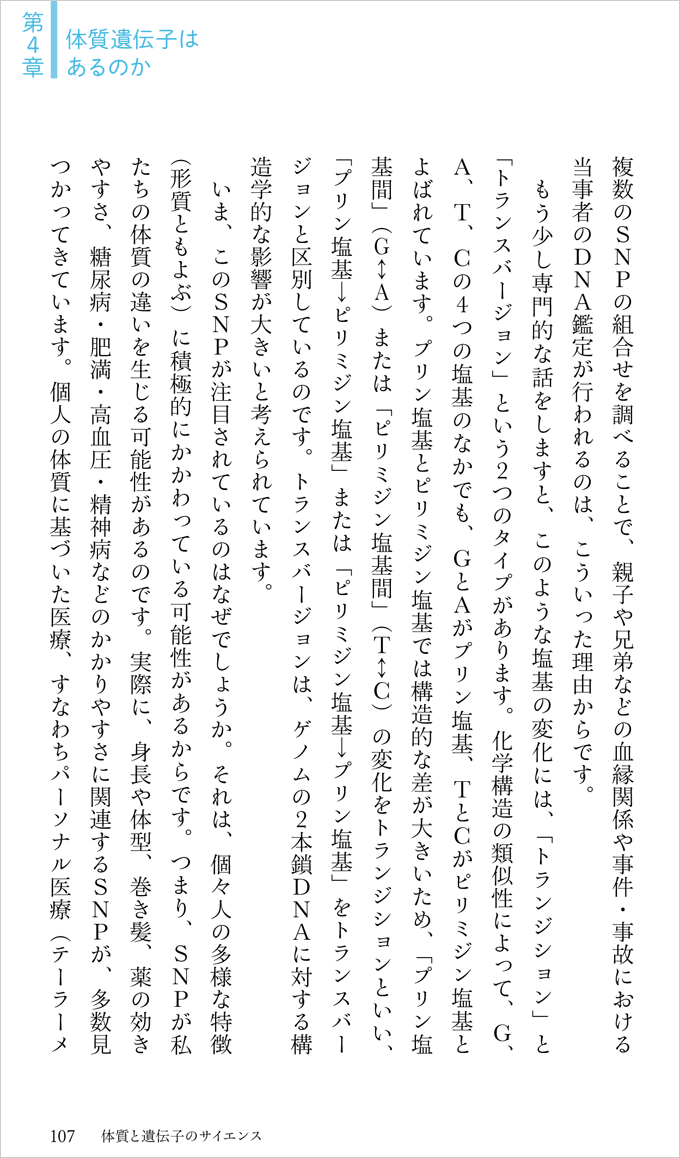 第4章
体質遺伝子は
あるのか
複数のSNPの組合せを調べることで、親子や兄弟などの血縁関係や事件・事故における
当事者のDNA鑑定が行われるのは、こういった理由からです。
もう少し専門的な話をしますと、このような塩基の変化には、「トランジション」と
「トランスバージョン」という2つのタイプがあります。化学構造の類似性によって、G、
A、T、Cの4つの塩基のなかでも、GとAがプリン塩基、TとCがピリミジン塩基と
よばれています。プリン塩基とピリミジン塩基では構造的な差が大きいため、「プリン塩
基間」（G↕A）または「ピリミジン塩基間」（T↕C）の変化をトランジションといい、
「プリン塩基↓ピリミジン塩基」または「ピリミジン塩基↓プリン塩基」をトランスバー
ジョンと区別しているのです。トランスバージョンは、ゲノムの2本鎖DNAに対する構
造学的な影響が大きいと考えられています。
いま、このSNPが注目されているのはなぜでしょうか。それは、個々人の多様な特徴
（形質ともよぶ）に積極的にかかわっている可能性があるからです。つまり、SNPが私
たちの体質の違いを生じる可能性があるのです。実際に、身長や体型、巻き髪、薬の効き
やすさ、糖尿病・肥満・高血圧・精神病などのかかりやすさに関連するSNPが、多数見
つかってきています。個人の体質に基づいた医療、すなわちパーソナル医療（テーラーメ
107 体質と遺伝子のサイエンス